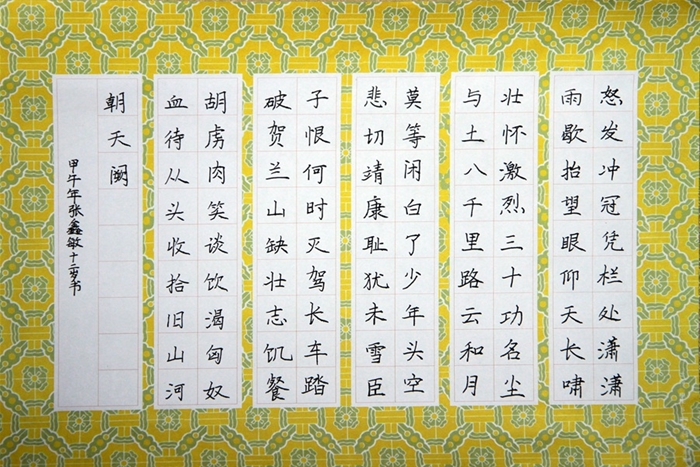 怒发冲冠凭栏处潇潇
雨歇抬望眼仰天长啸
壮怀激烈三十功名尘
与土八千里路云和月
莫等闲白了少年头空
悲切靖康耻犹未雪臣
子恨何时灭驾长车踏
破贺兰山缺壮志饥餐
胡虏肉笑谈饮渴匈奴
血待从头收拾旧山河
朝天阙
甲午年张鑫敏十二岁书